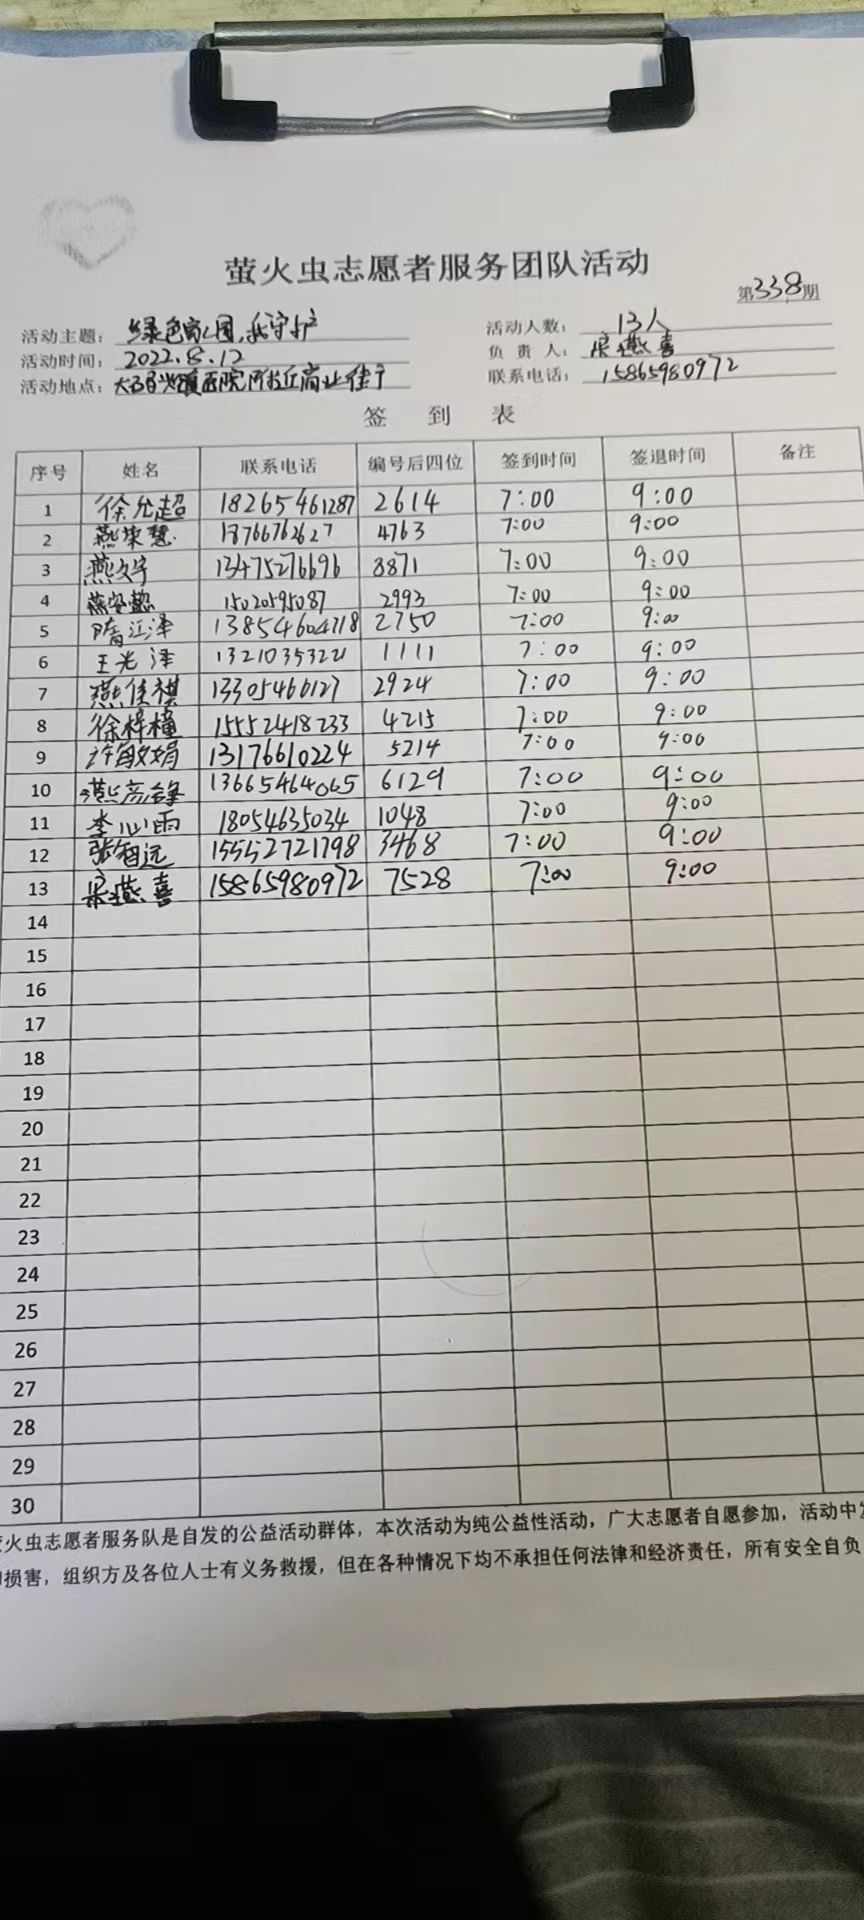 萤火虫志愿者服务团队活动
第338期
活动主题: 绿色家园,我守护
活动人数: 13人
活动时间: 2022.8.12
负责人: 宋燕喜
活动地点: 大码头镇医院附近商业街
联系电话: 15865980972
签到表
序号 姓名 联系电话 编号后四位 签到时间 签退时间 备注
1 徐允超 18265461287 2614 7:00 9:00
2 燕荣慧 18766762627 4763 7:00 9:00
3 燕文宇 13475276696 8871 7:00 9:00
4 燕安懿 15020595087 2993 7:00 9:00
5 隋江泽 13854604718 2750 7:00 9:00
6 王光泽 13210353221 1111 7:00 9:00
7 燕佳祺 13305460127 2924 7:00 9:00
8 徐梓橦 15552418233 4215 7:00 9:00
9 许敏娟 13176610224 5214 7:00 9:00
10 燕彦锋 13665464065 6129 7:00 9:00
11 李心雨 18054635034 1048 7:00 9:00
12 张智远 15552721798 3468 7:00 9:00
13 宋燕喜 15865980972 7528 7:00 9:00
14
15
16
17
18
19
20
21
22
23
24
25
26
27
28
29
30
火虫志愿者服务队是自发的公益活动群体,本次活动为纯公益性活动,广大志愿者自愿参加,活动中发
损害,组织方及各位人士有义务救援,但在各种情况下均不承担任何法律和经济责任,所有安全自负